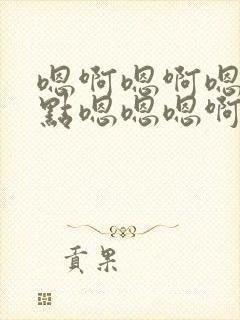 嗯啊嗯啊嗯
點嗯嗯嗯啊
貢果